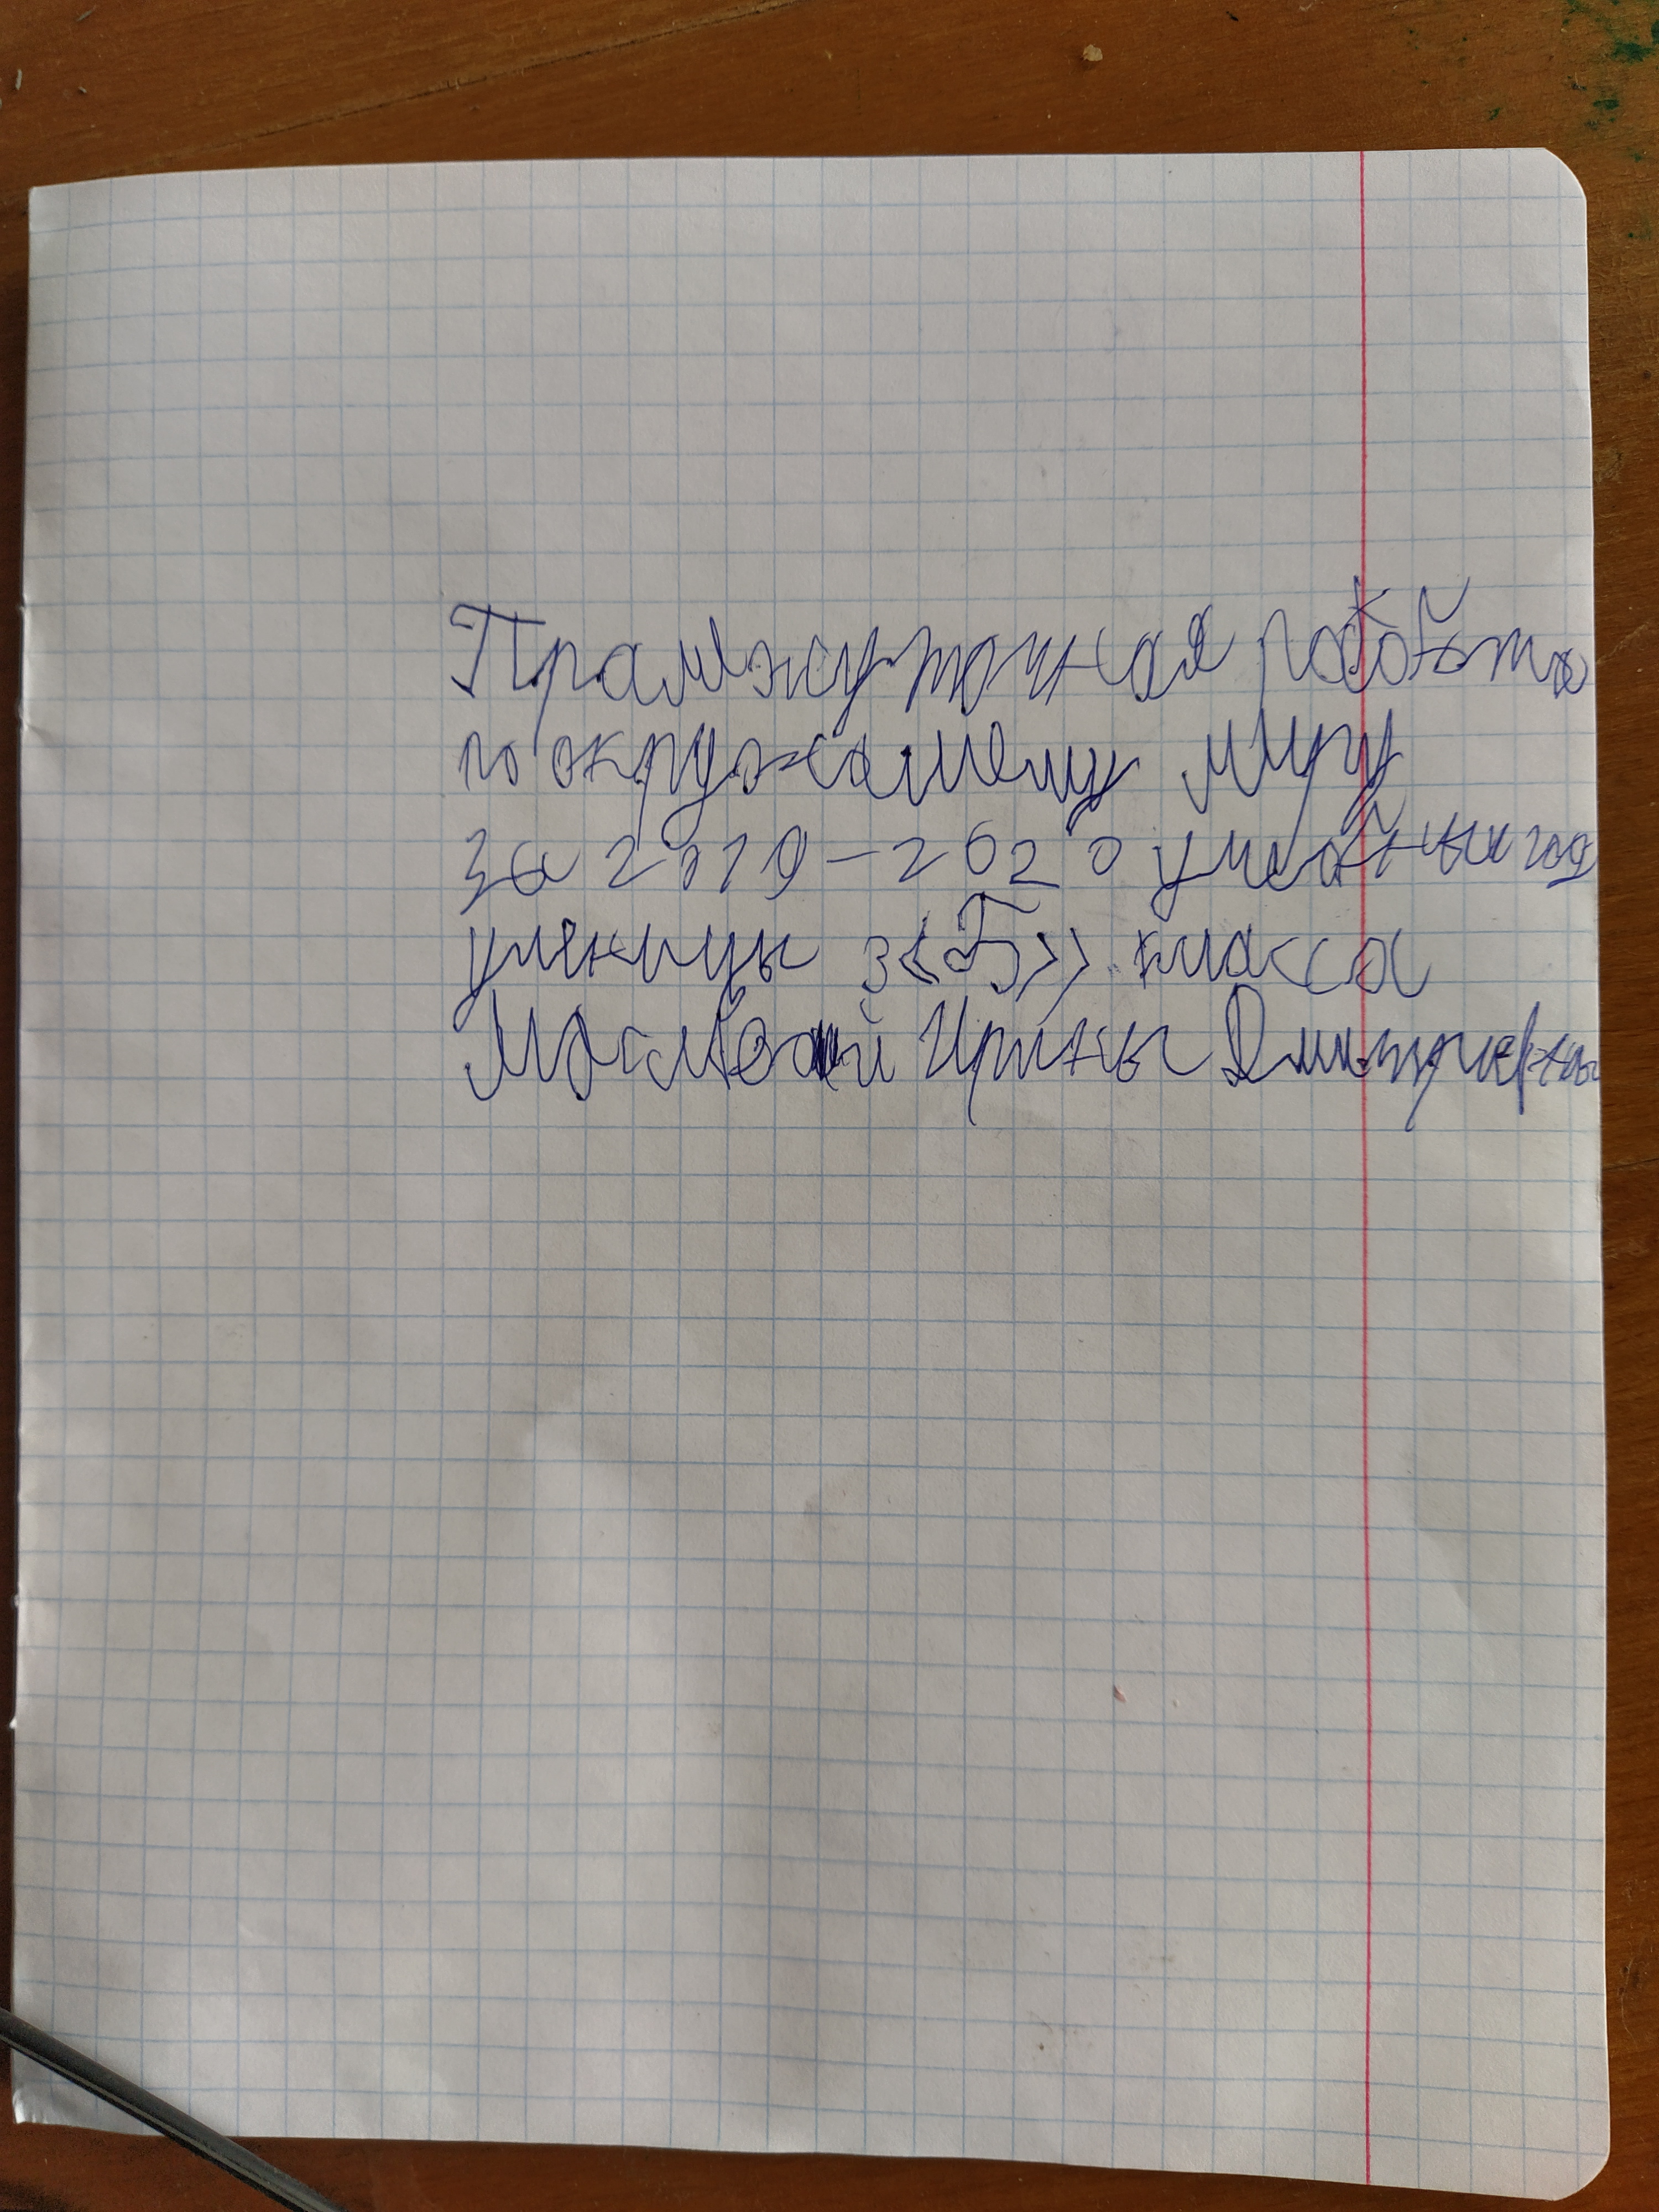 Прамежуточная работа
по окружаюшему миру
за 2019-2020 учебный год
ученицы 3 «Б» класса
Ирины Дмитриевны